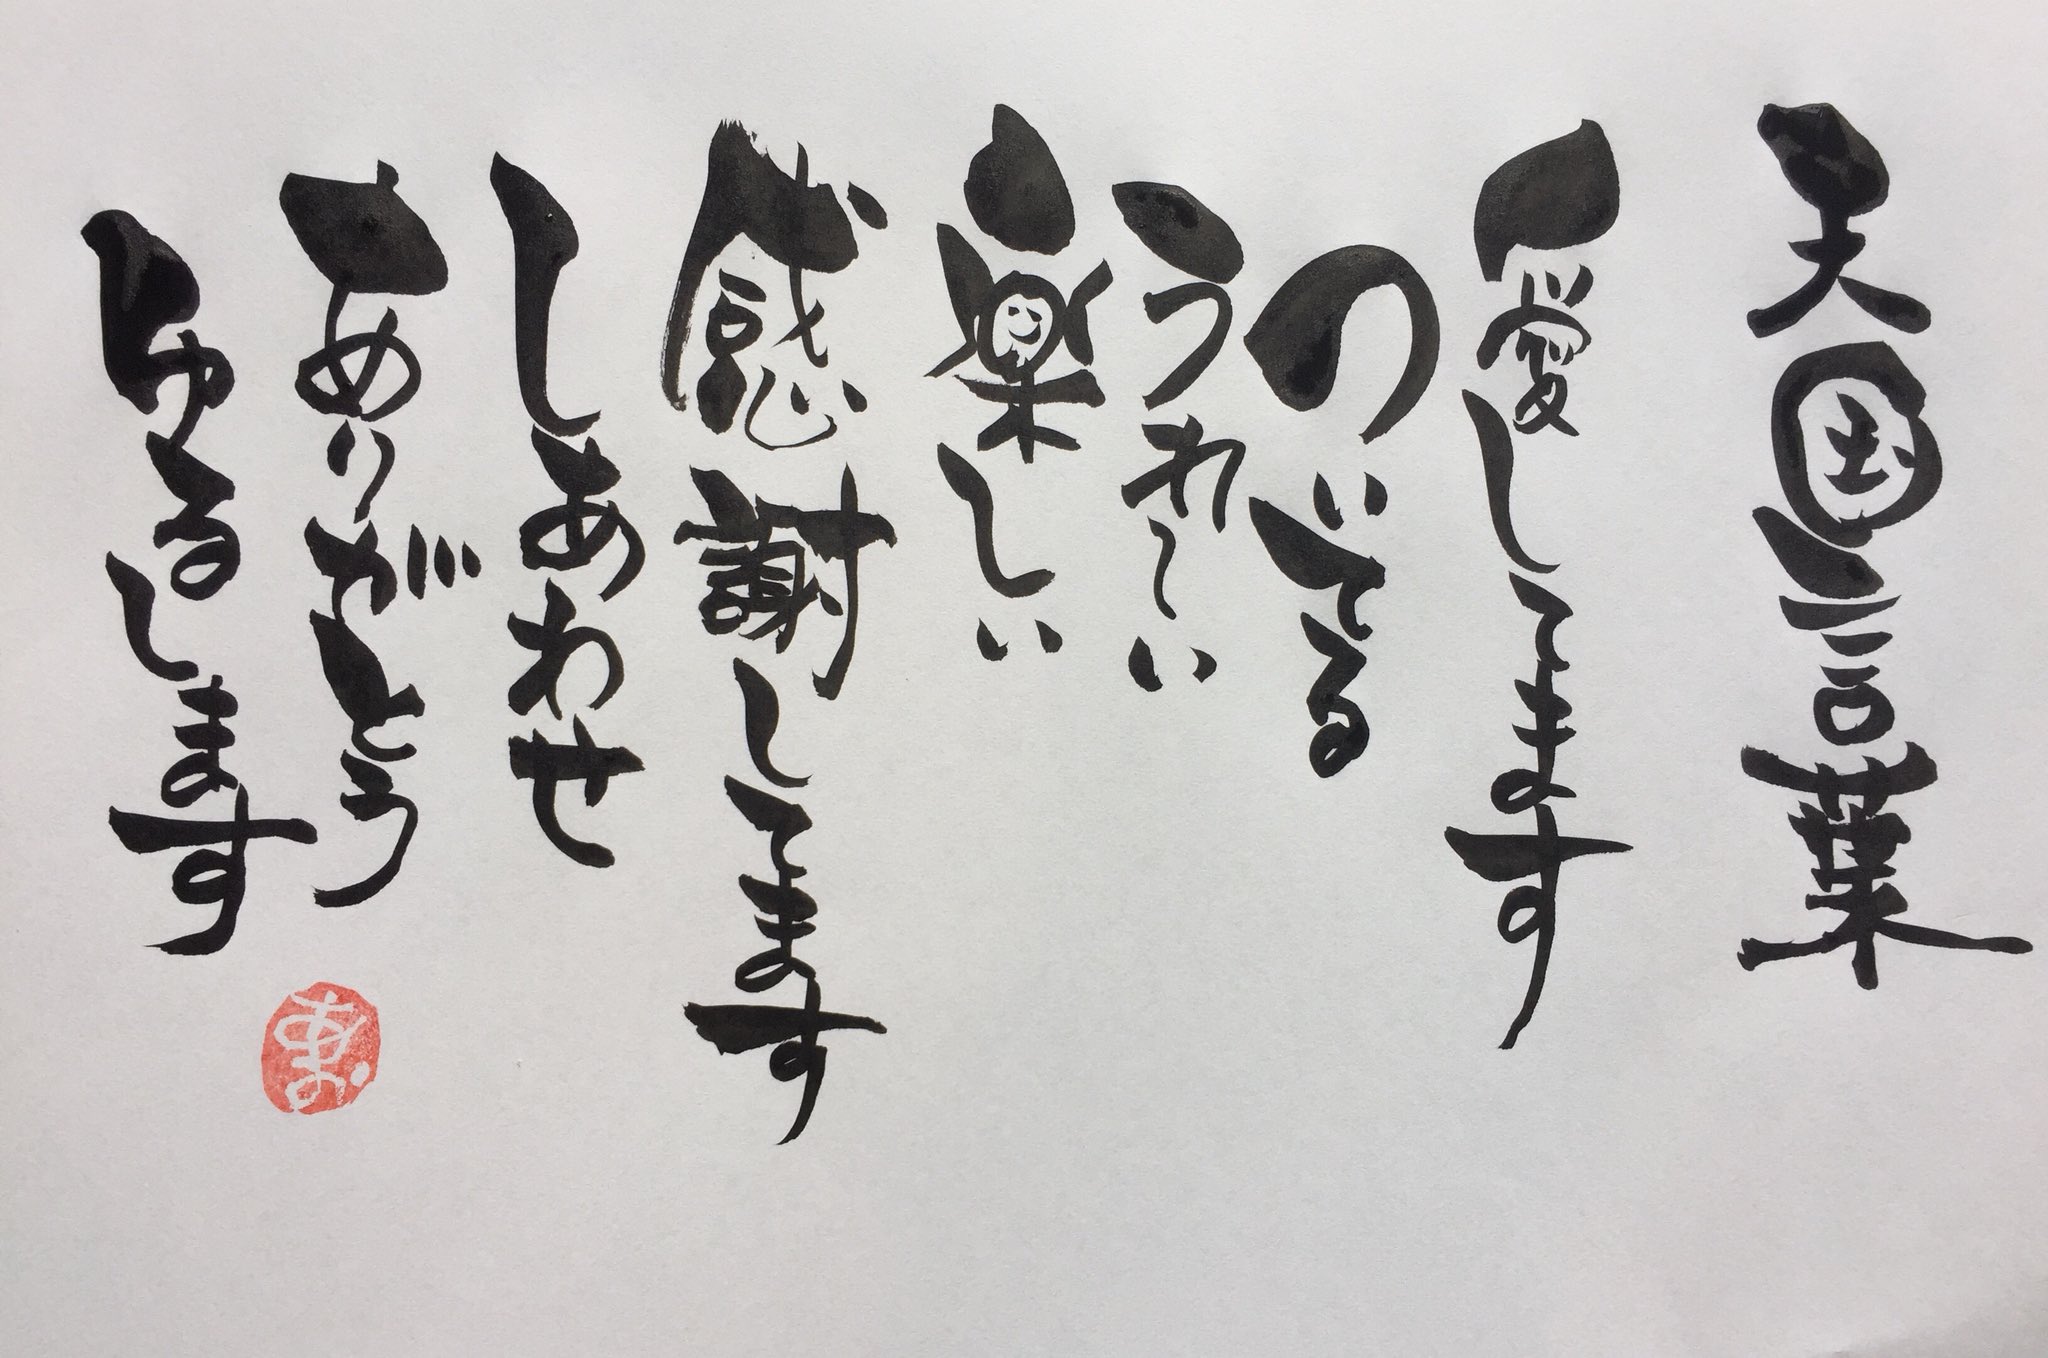 天国言葉
愛してます
ついてる
うれしい
楽しい
感謝してます
しあわせ
ありがとう
ゆるします